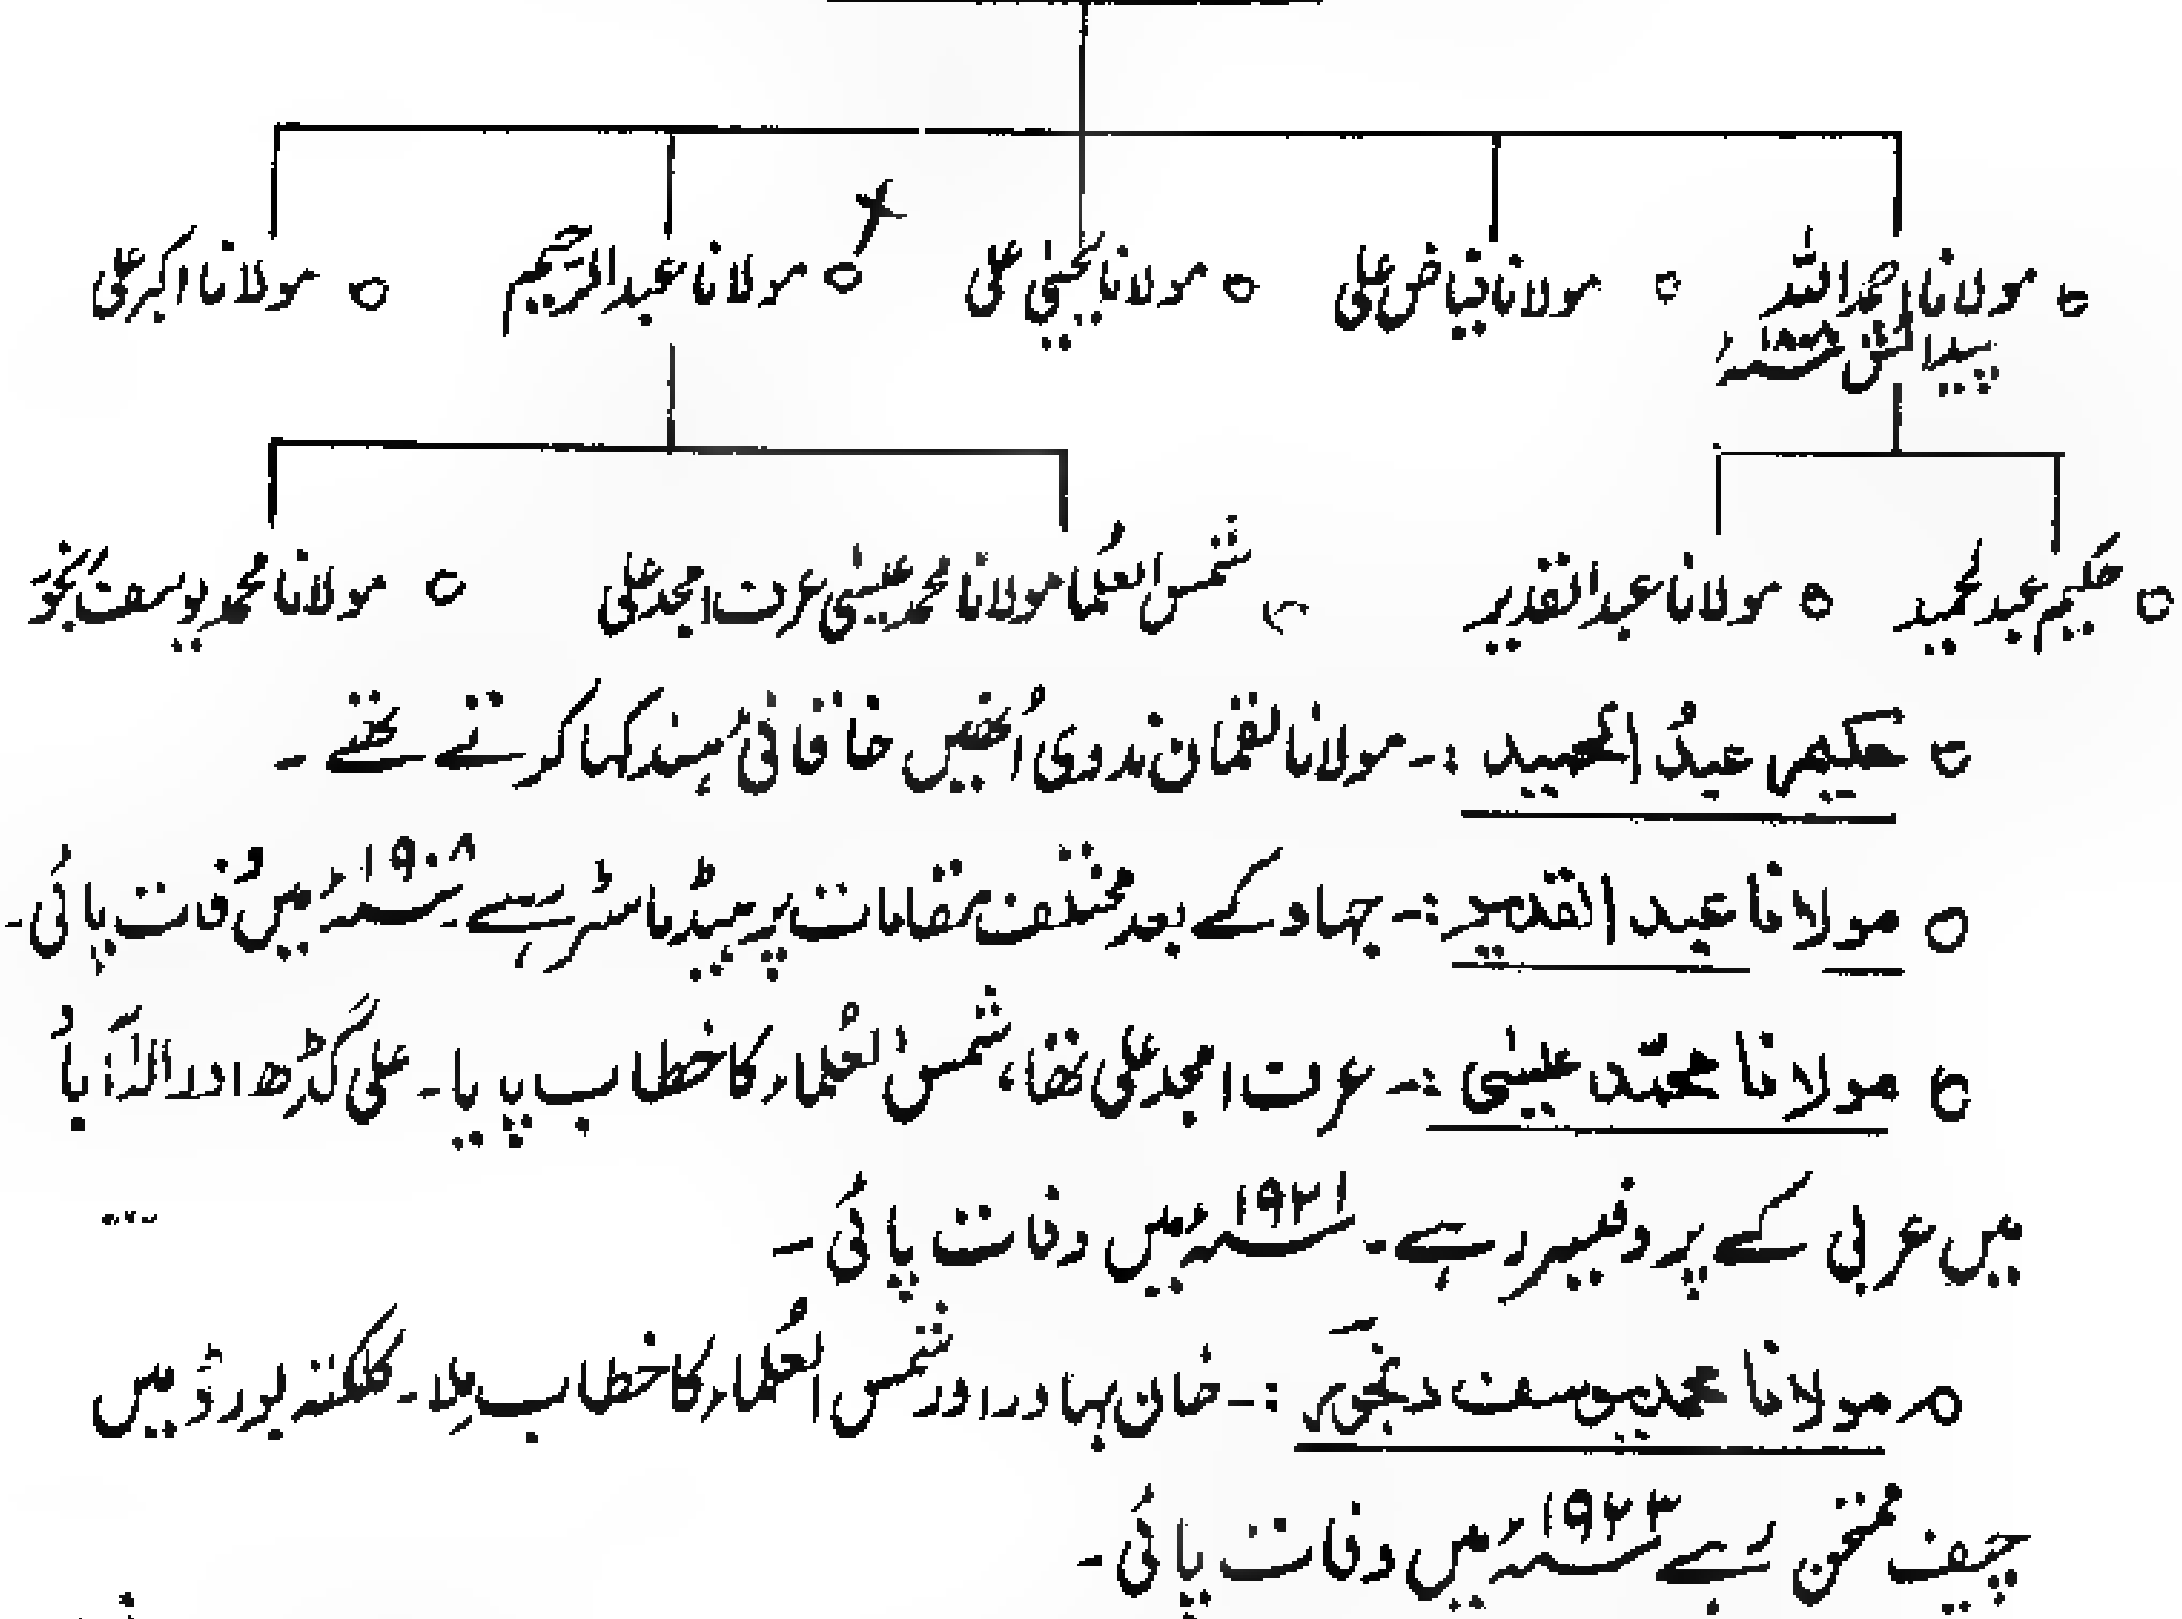 مولانا احمد اللہ مولانا فیاض علی مولانا یحییٰ علی مولانا عبدالرحیم مولانا اکبر علی
پیدائش ۱۸۰۸ء
حکیم عبدالحمید مولانا عبدالقدیر شمس العُلما مولانا محمد عیسیٰ عرف امجد علی مولانا محمد یوسف
حکیم عبدُ الحمید :- مولانا لقمان ندوی اُنھیں خاقانیٔ ہند کہا کرتے تھے ۔
مولانا عبد القدیر :- جہاد کے بعد مختلف مقامات پر ہیڈ ماسٹر رہے ۔ ۱۹۰۸ء میں وفات پائی ۔
مولانا محمّد عیسٰی :- عرف امجد علی تھا، شمس العُلماء کا خطاب پایا ۔ علی گڑھ اور الہٰ آباد
میں عربی کے پروفیسر رہے ۔ ۱۹۲۱ء میں وفات پائی ۔
مولانا محمد یوسف رنجور :- خان بہادر اور شمس العُلماء کا خطاب مِلا ۔ کلکتہ بورڈ میں
چیف ممتحن رہے ۱۹۲۳ء میں وفات پائی ۔